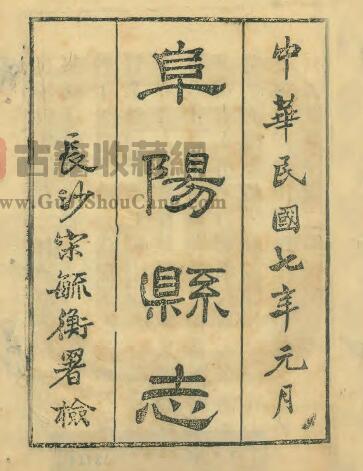 中華民國七年元月
阜陽縣志
長沙宋毓衡署檢
古籍收藏網
www.GujiShouCang.com